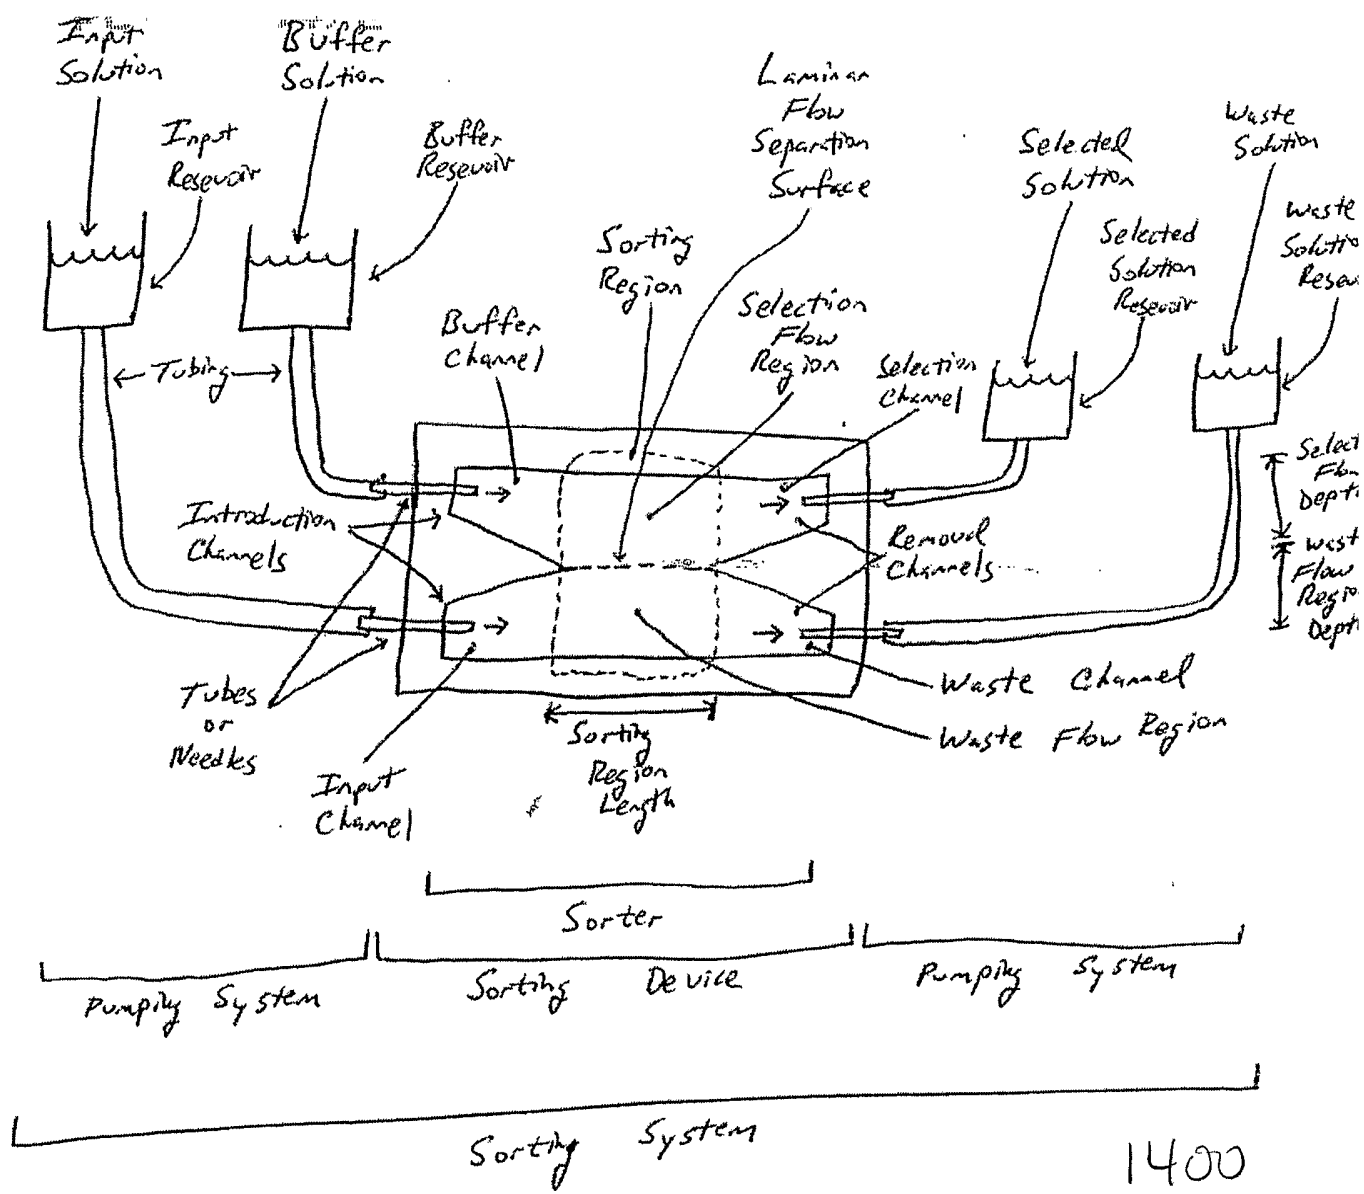 Input
Solution
Buffer
Solution
Input
Resevoir
Buffer
Resevoir
Laminar
Flow
Separation
Surface
Selected
Solution
Waste
Solution
Selected
Solution
Resevoir
Waste
Sorting
Region
Selection
Flow
Region
Buffer
Channel
Tubing
Selection
Channel
Introduction
Channels
Removal
Channels
Waste
Flow
Tubes
or
Needles
Input
Channel
Sorting
Region
Length
Waste Channel
Waste Flow Region
Sorter
Pumping System
Sorting Device
Pumping System
Sorting System
1400